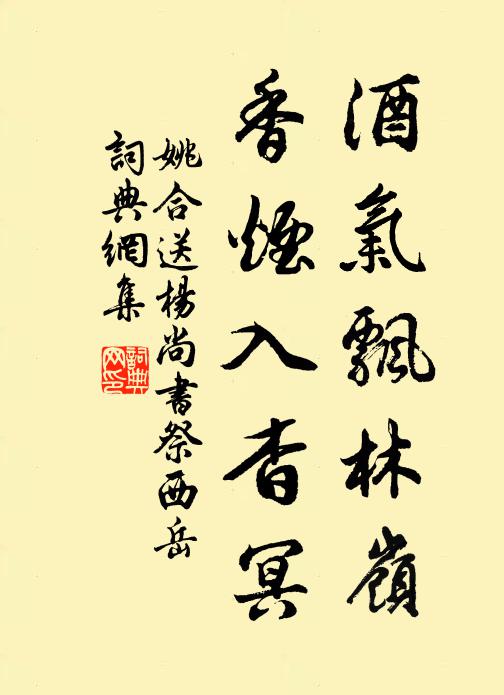 酒氣飄林嶺
香煙入杳冥
姚合送楊尚書祭西岳
詞典網集
詞典网印